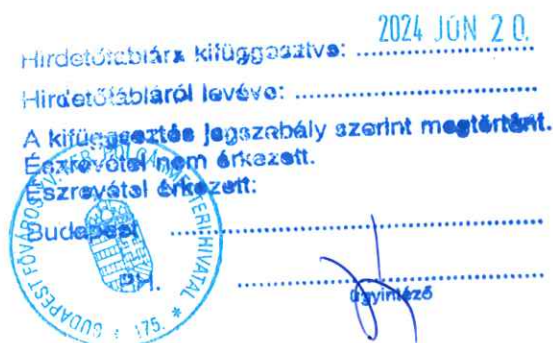 2024 JÚN 20.
Hirdetőtáblára kifüggesztve: ....................
Hirdetőtábláról levéve: ....................
A kifüggesztés jogszabály szerint megtörtént.
Észrevétel nem érkezett.
Észrevétel érkezett:
Budapest ....................
PH. ....................
ügyintéző
BUDAPEST FŐVÁROS KER. POLGÁRMESTERI HIVATAL * BUDAPEST * 175. *